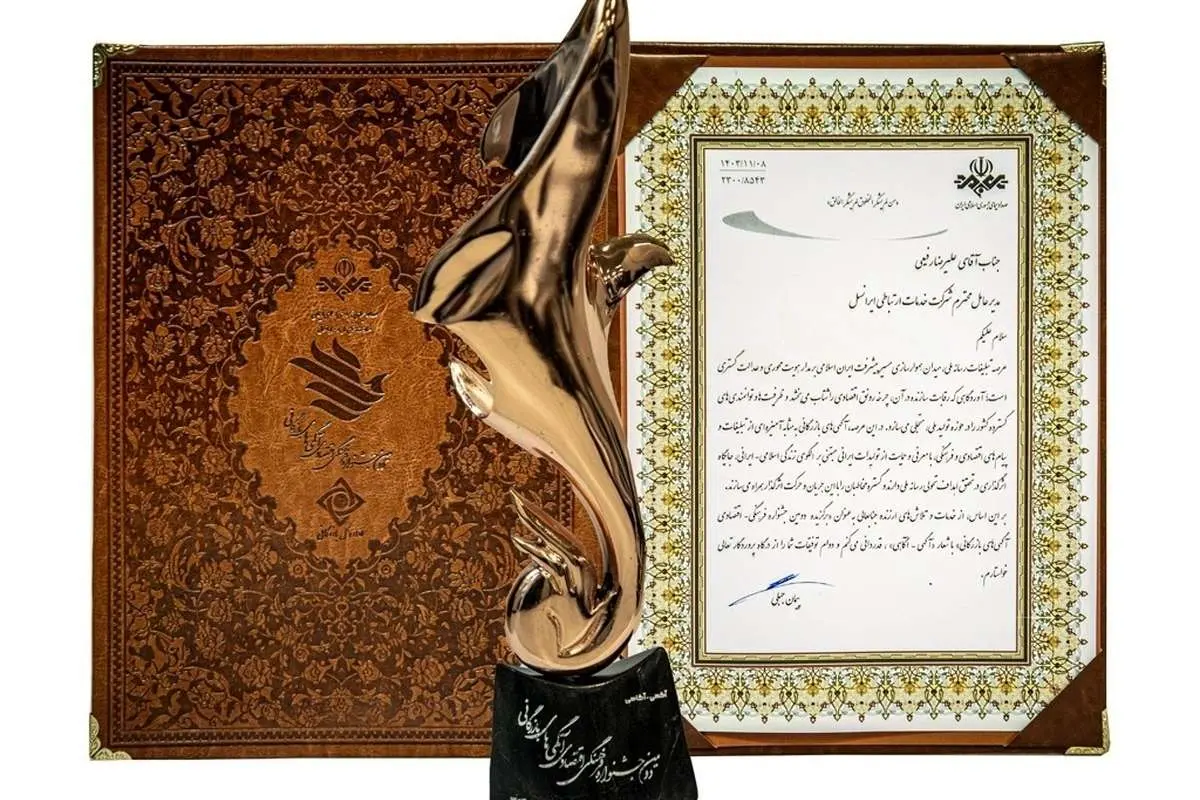 ۱۴۰۳/۱۱/۰۸
۲۳۰۰/۸۵۴۳
صدا و سیمای جمهوری اسلامی ایران
«من لم یشکر المخلوق لم یشکر الخالق»
جناب آقای علیرضا رفیعی
مدیر عامل محترم شرکت خدمات ارتباطی ایرانسل
سلام علیکم
عرصه تبلیغات رسانه ملی، میدان هموارسازی مسیر پیشرفت ایران اسلامی بر مدار هویت محوری و عدالت گستری
است؛ آوردگاهی که رقابت سازنده در آن، چرخه رونق اقتصادی را شتاب می بخشد و ظرفیت ها و توانمندی های
گسترده کشور را در حوزه تولید ملی، متجلی می سازد. در این عرصه، آگهی های بازرگانی به مثابه آمیزه ای از تبلیغات و
پیام های اقتصادی و فرهنگی، با معرفی و حمایت از تولیدات ایرانی مبتنی بر الگوی زندگی اسلامی - ایرانی، جایگاه
اثرگذاری در تحقق اهداف تحولی رسانه ملی دارند و گستره مخاطبان را با این جریان و حرکت اثرگذار همراه می سازند.
بر این اساس، از خدمات و تلاش های ارزنده جنابعالی به عنوان «برگزیده دومین جشنواره فرهنگی - اقتصادی
آگهی های بازرگانی» با شعار «آگهی - آگاهی»، قدردانی می کنم و دوام توفیقات شما را از درگاه پروردگار متعال
خواستارم.
پیمان جبلی
دومین جشنواره فرهنگی اقتصادی آگهی های بازرگانی
آگهی - آگاهی
دومین جشنواره فرهنگی اقتصادی آگهی های بازرگانی